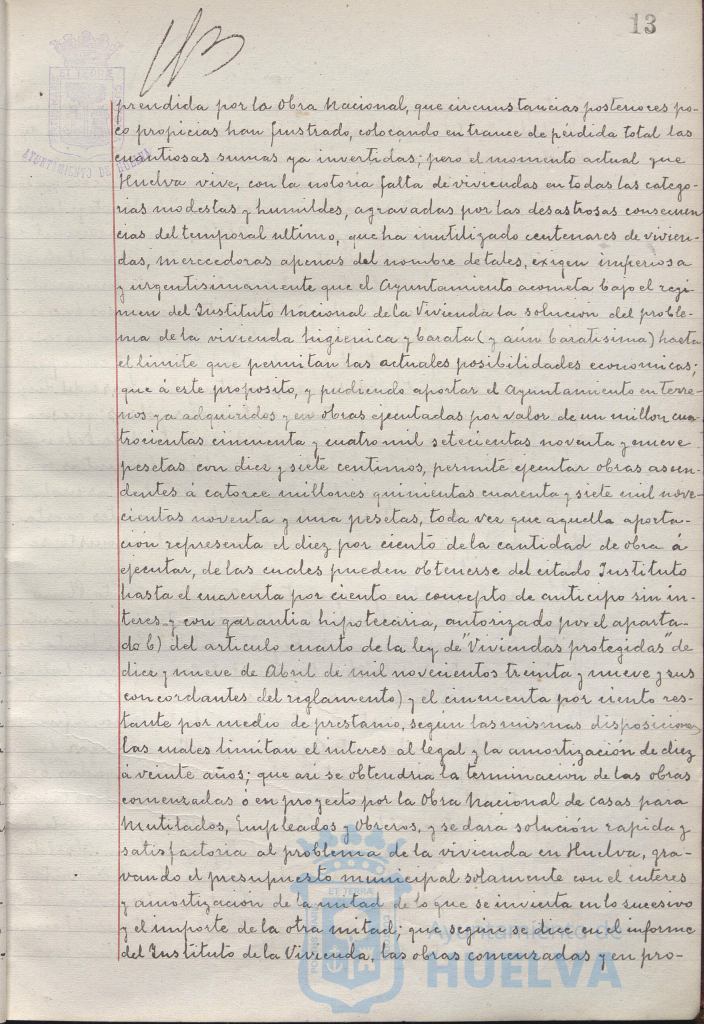 13
prendida por la Obra Nacional, que circunstancias posteriores po-
co propicias han frustrado, colocando en trance de pérdida total las
cuantiosas sumas ya invertidas; pero el momento actual que
Huelva vive, con la notoria falta de viviendas en todas las catego-
rias modestas y humildes, agravadas por las desastrosas consecuen
cias del temporal ultimo, que ha inutilizado centenares de vivien-
das, merecedoras apenas del nombre de tales, exigen imperiosa
y urgentisimamente que el Ayuntamiento acometa bajo el regi-
men del Instituto Nacional de la Vivienda la solucion del proble-
ma de la vivienda higienica y barata (y aún baratisima) hasta
el limite que permitan las actuales posibilidades economicas;
que á este proposito, y pudiendo aportar el Ayuntamiento en terre-
nos ya adquiridos y en obras ejecutadas por valor de un millon cua-
trocientas cincuenta y cuatro mil setecientas noventa y nueve
pesetas con diez y siete centimos, permite ejecutar obras ascen-
dentes á catorce millones quinientas cuarenta y siete mil nove-
cientas noventa y una pesetas, toda vez que aquella aporta-
ción representa el diez por ciento de la cantidad de obra á
ejecutar, de las cuales pueden obtenerse del citado Instituto
hasta el cuarenta por ciento en concepto de anticipo sin in-
teres y con garantia hipotecaria, autorizado por el aparta-
do b) del articulo cuarto de la ley de "Viviendas protegidas" de
diez y nueve de Abril de mil novecientos treinta y nueve y sus
concordantes del reglamento) y el cincuenta por ciento res-
tante por medio de prestamo, según las mismas disposiciones
las cuales limitan el interes al legal y la amortización de diez
á veinte años; que asi se obtendria la terminación de las obras
comenzadas ó en proyecto por la Obra Nacional de casas para
Mutilados, Empleados y Obreros, y se dará solución rapida y
satisfactoria al problema de la vivienda en Huelva, gra-
vando el presupuesto municipal solamente con el interes
y amortización de la mitad de lo que se invierta en lo sucesivo
y el importe de la otra mitad; que segun se dice en el informe
del Instituto de la Vivienda, las obras comenzadas y en pro-
AYUNTAMIENTO DE HUELVA
Ayuntamiento de
HUELVA